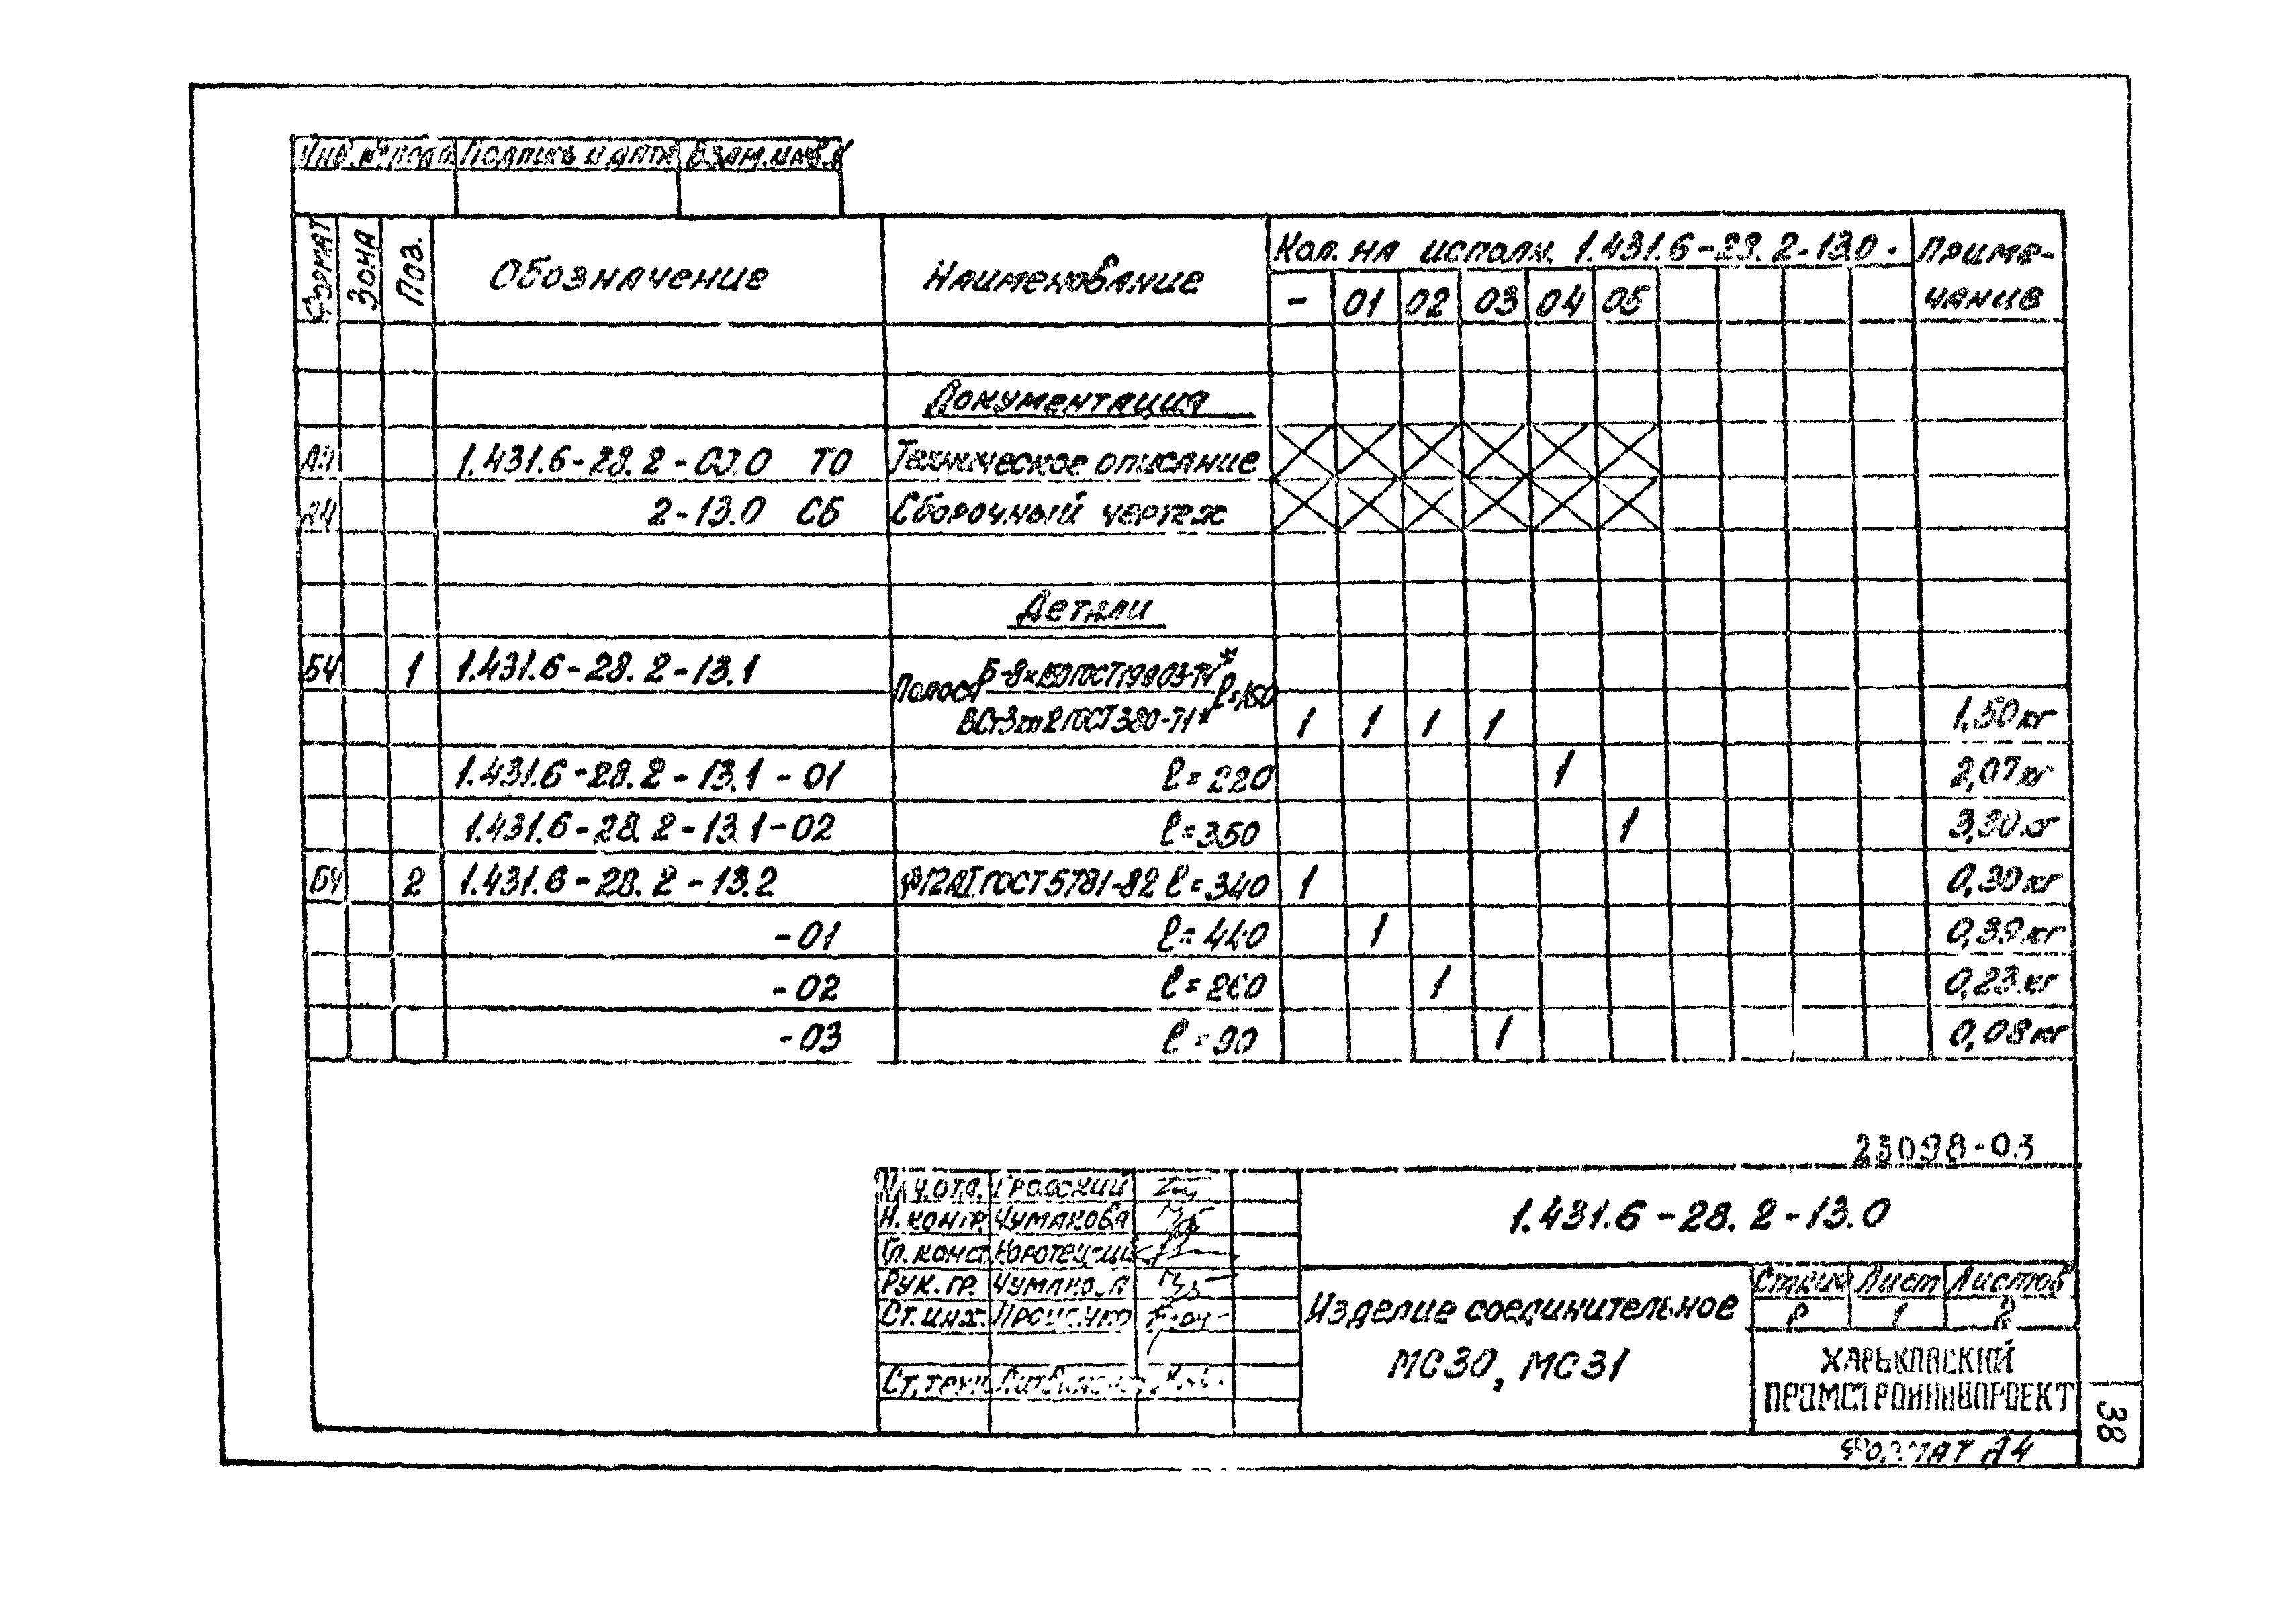 Инв.№ подл. Подпись и дата Взам.инв.№
Формат Зона Поз. Обозначение Наименование Кол. на исполн. 1.431.6-28.2-13.0 - Приме-
- 01 02 03 04 05 чание
Документация
А4 1.431.6-28.2-00.0 ТО Техническое описание
А4 2-13.0 СБ Сборочный чертеж
Детали
БЧ 1 1.431.6-28.2-13.1 Полоса Б-8×150 ГОСТ 19903-74* ℓ=150
ВСт3пп2 ГОСТ 380-71* 1 1 1 1 1,50 кг
1.431.6-28.2-13.1-01 ℓ=220 1 2,07 кг
1.431.6-28.2-13.1-02 ℓ=350 1 3,30 кг
БЧ 2 1.431.6-28.2-13.2 Ф12АI ГОСТ 5781-82 ℓ=340 1 0,30 кг
-01 ℓ=440 1 0,39 кг
-02 ℓ=260 1 0,23 кг
-03 ℓ=90 1 0,08 кг
23098-03
Нач.отд. Гродский
Н. контр. Чумакова
Гл. конст.
Рук. гр.
Ст. инж.
Ст. техн.
1.431.6-28.2-13.0
Изделие соединительное
МС30, МС31
Стадия Лист Листов
Р 1 2
ХАРЬКОВСКИЙ
ПРОМСТРОЙНИИПРОЕКТ
38
Формат А4